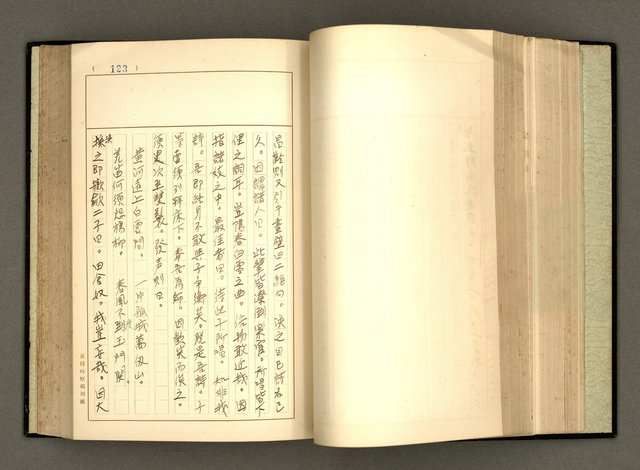 ( 123 )
昌齡則又引手畫壁曰二絕句。渙之自以詩名已
久。因謂諸人曰。此輩皆潦倒樂官。所唱皆下
俚之詞耳。豈陽春白雪之曲。俗物敢近哉。因
指諸妓之中。最佳者曰。待此子所唱。如非我
詩。吾即終身不敢與子爭衡矣。脫是吾詩。子
等當須列拜床下。奉吾為師。因歡笑而俟之。
須臾次至雙鬟。發声則曰。
黃河遠上白雲間。 一片孤城萬仞山。
羌笛何須怨楊柳。 春風不到玉門關。
渙之即揶揄二子曰。田舍奴。我豈妄哉。因大